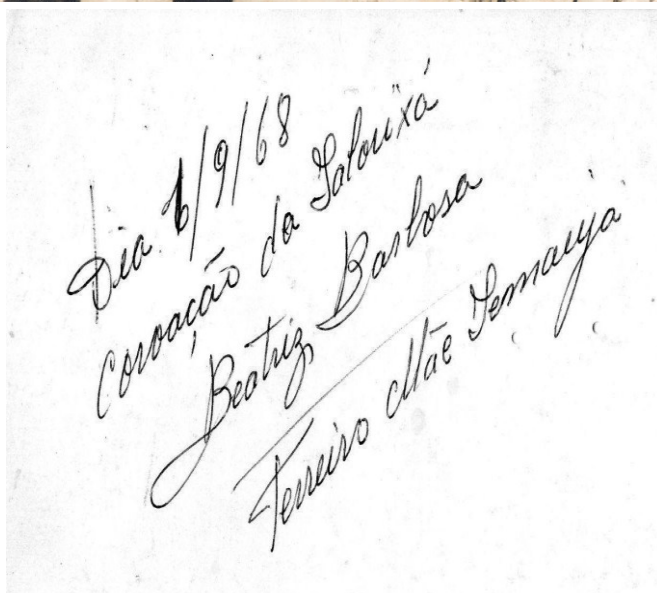 Dia 6/9/68
Coroação da Ialorixá
Beatriz Barbosa
Terreiro Mãe Iemanja